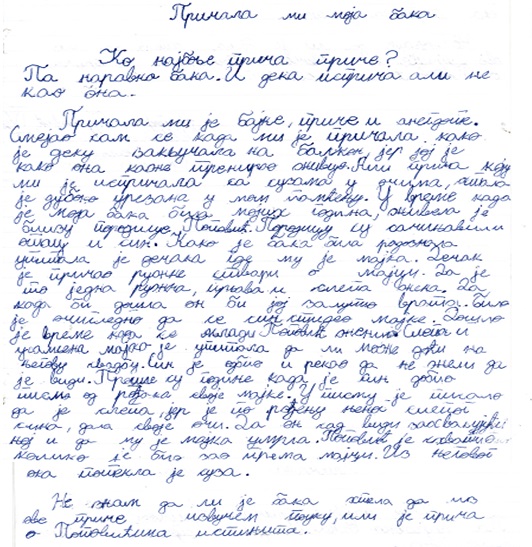 Причала ми моја бака
Ко најбоље прича приче?
Па наравно бака. И дека исприча али не
као она.
Причала ми је бајке, приче и анегдоте.
Смејао сам се када ми је причала како
је деку закључала на балкон, јер јој је
како она каже тренирао живце. Али прича коју
ми је испричала са сузама у очима, остала
је дубоко урезана у мом памћењу. У време када
је моја бака била мојих година, живела је
близу породице Поповић. Породицу су сачињавали
отац и син. Како је бака била радознала
упитала је дечака где му је мајка. Дечак
је причао ружне ствари о мајци. Да је
то једна ружна, прљава и слепа жена. Да
када би дошла он би јој залупио врата. Било
је очигледно да се син стидео мајке. Дошло
је време када се млади Поповић женио. Слепа и
мајка је упитала да ли може доћи на
његову свадбу. Син је одбио и рекао да не жели да
је види. Прошле су године када је син добио
писмо од рођака своје мајке. У писму је писало
да је слепа, јер је по рођењу њеног слепог
сина, дала своје очи. Да он сад види захваљујући
њој и да му је мајка умрла. Поповић је схватио
колико је био зао према мајци. Из његовог
ока потекла је суза.
Не знам да ли је бака хтела да из
ове приче извучем поуку, или је прича
о Поповићима истинита.